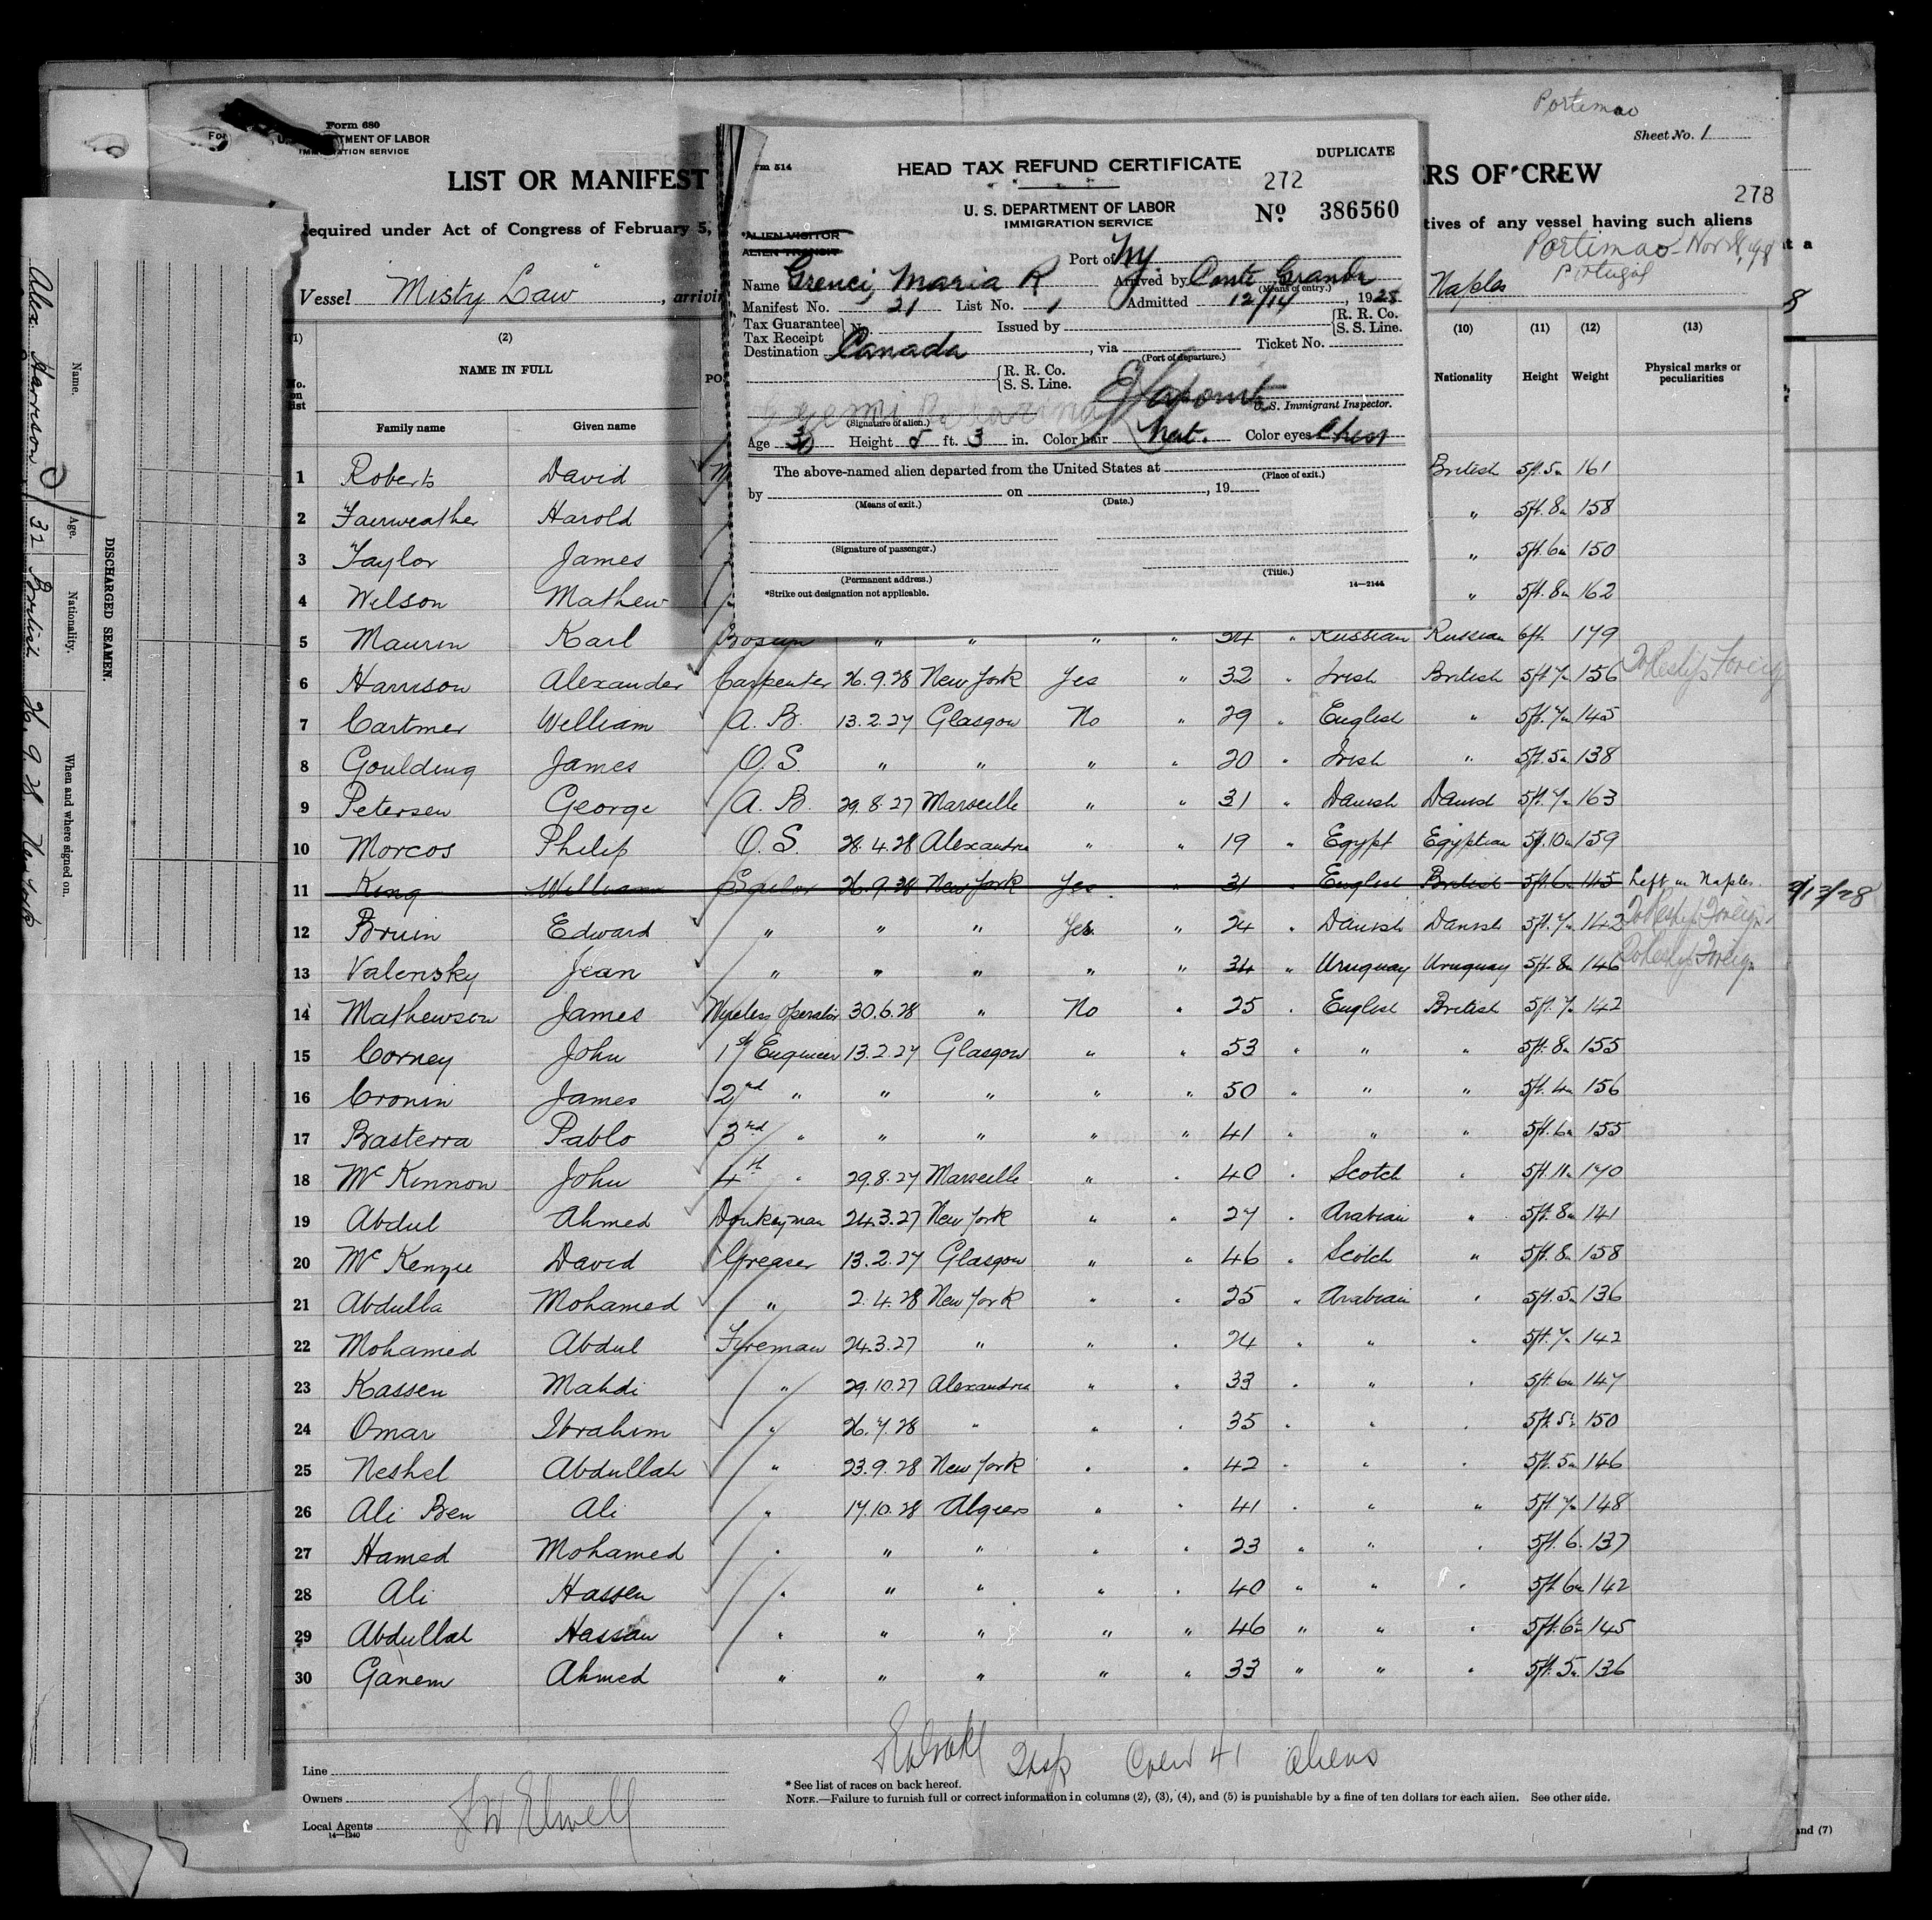 Portimao
Sheet No. 1
Form 680
U. S. DEPARTMENT OF LABOR
IMMIGRATION SERVICE
LIST OR MANIFEST
ERS OF CREW
278
Required under Act of Congress of February 5,
tives of any vessel having such aliens
Portimao Nov
Portugal
Vessel Misty Law, arrivin
Naples
DUPLICATE
rm 514
HEAD TAX REFUND CERTIFICATE
272
U. S. DEPARTMENT OF LABOR
IMMIGRATION SERVICE
No 386560
*ALIEN VISITOR
ALIEN TRANSIT
Port of Ny.
Name Grenci, Maria R Arrived by Conte Grande
(Means of entry.)
Manifest No. 21 List No. 1 Admitted 12/14, 1928
Tax Guarantee No. Issued by R. R. Co.
Tax Receipt S. S. Line.
Destination Canada, via Ticket No.
(Port of departure.)
R. R. Co.
S. S. Line.
U. S. Immigrant Inspector.
(Signature of alien.)
Age 30 Height 5 ft. 3 in. Color hair Color eyes
The above-named alien departed from the United States at
(Place of exit.)
by on , 19
(Means of exit.) (Date.)
(Signature of passenger.)
(Permanent address.) (Title.)
*Strike out designation not applicable.
14—2144
(1) (2) (10) (11) (12) (13)
No. on list NAME IN FULL PO Nationality Height Weight Physical marks or peculiarities
Family name Given name
1 Roberts David British 5ft. 5in 161
2 Fairweather Harold " 5ft. 8in 158
3 Taylor James " 5ft. 6in 150
4 Wilson Mathew " 5ft. 8in 162
5 Maurin Karl Bosun " " " " 34 " Russian Russian 6ft. 179
6 Harrison Alexander Carpenter 26.9.28 New York Yes " 32 " Irish British 5ft. 7in 156
7 Cartmer William A. B. 13.2.27 Glasgow No " 29 " English " 5ft. 7in 145
8 Goulding James O. S. " " " " 20 " Irish " 5ft. 5in 138
9 Petersen George A. B. 29.8.27 Marseille " " 31 " Danish Danish 5ft. 7in 163
10 Morcos Philip O. S. 28.4.28 Alexandria " " 19 " Egypt Egyptian 5ft. 10in 159
11 King William Sailor 26.9.28 New York Yes " 31 " English British 5ft. 6in 145 Left in Naples.
12 Bruin Edward " " " Yes " 24 " Danish Danish 5ft. 7in 142
13 Valensky Jean " " " " " 34 " Uruguay Uruguay 5ft. 8in 146
14 Mathewson James Wireless operator 30.6.28 " No " 25 " English British 5ft. 7in 142
15 Corney John 1st Engineer 13.2.27 Glasgow " " 53 " " " 5ft. 8in 155
16 Cronin James 2nd " " " " " 50 " " " 5ft. 4in 156
17 Basterra Pablo 3rd " " " " " 41 " " " 5ft. 6in 155
18 McKinnon John 4th " 29.8.27 Marseille " " 40 " Scotch " 5ft. 11in 170
19 Abdul Ahmed Donkeyman 24.3.27 New York " " 27 " Arabian " 5ft. 8in 141
20 McKenzie David Greaser 13.2.27 Glasgow " " 46 " Scotch " 5ft. 8in 158
21 Abdulla Mohamed " 2.4.28 New York " " 25 " Arabian " 5ft. 5in 136
22 Mohamed Abdul Fireman 24.3.27 " " " 24 " " " 5ft. 7in 142
23 Kassen Mahdi " 29.10.27 Alexandria " " 33 " " " 5ft. 6in 147
24 Omar Ibrahim " 26.7.28 " " " 35 " " " 5ft. 5in 150
25 Neshel Abdullah " 23.9.28 New York " " 42 " " " 5ft. 5in 146
26 Ali Ben Ali " 17.10.28 Algiers " " 41 " " " 5ft. 7in 148
27 Hamed Mohamed " " " " " 23 " " " 5ft. 6. 137
28 Ali Hassen " " " " " 40 " " " 5ft. 6in 142
29 Abdullah Hassan " " " " " 46 " " " 5ft. 6in 145
30 Ganem Ahmed " " " " " 33 " " " 5ft. 5in 136
Insp Crew 41 aliens
Line
Owners
Local Agents J W Elwell
14—1240
* See list of races on back hereof.
NOTE.—Failure to furnish full or correct information in columns (2), (3), (4), and (5) is punishable by a fine of ten dollars for each alien. See other side.
and (7)
DISCHARGED SEAMEN.
Name. Age. Nationality. When and where signed on.
Alex Harrison 32 British 26.9.28 New York